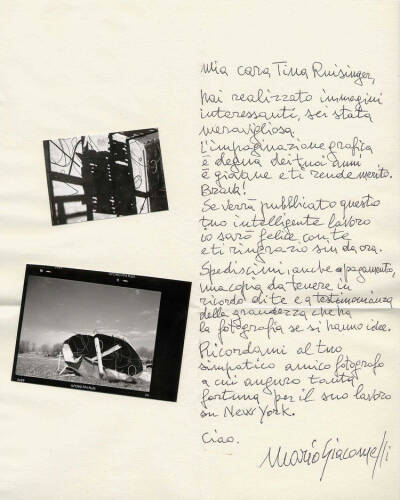 Mia cara Tina Ruisinger,
hai realizzato immagini
interessanti, sei stata
meravigliosa.
L'impaginazione grafica
è degna dei tuoi anni
è giovane e ti rende merito.
Brava!
Se verrà pubblicato questo
tuo intelligente lavoro
io sarò felice con te
e ti ringrazio sin da ora.
Spediscimi, anche a pagamento,
una copia da tenere in
ricordo di te e a testimonianza
della grandezza che ha
la fotografia se si hanno idee.
Ricordami al tuo
simpatico amico fotografo
a cui auguro tanta
fortuna per il suo lavoro
su New York.
Ciao.
Mario Giacomelli